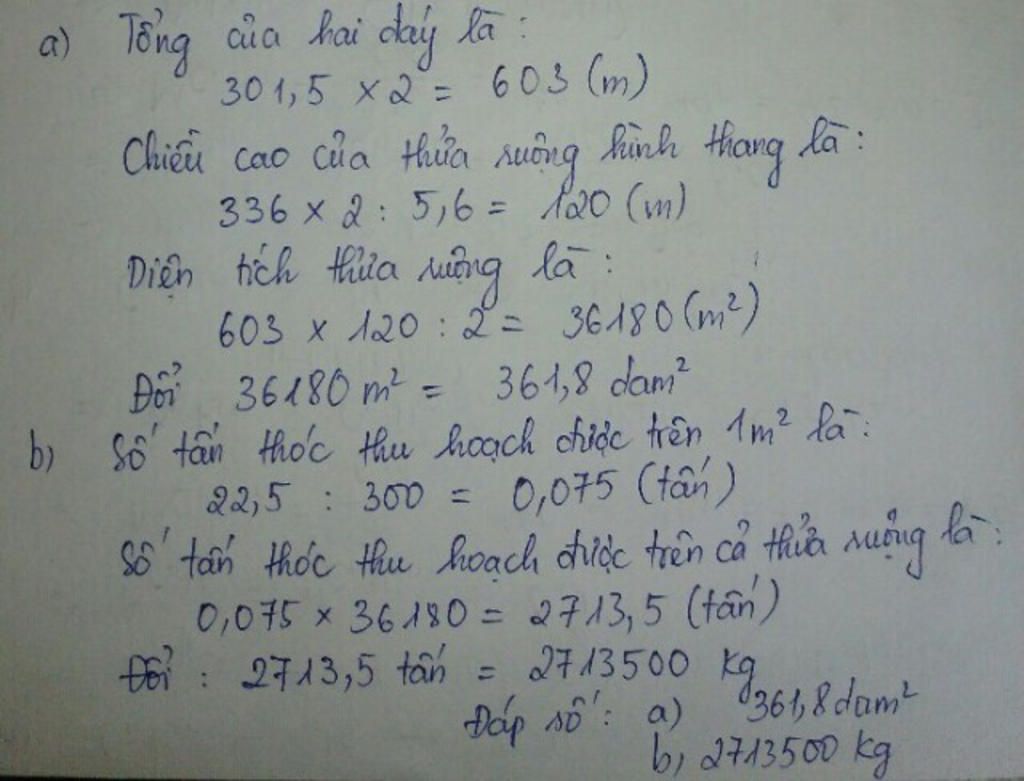 a) Tổng của hai đáy là :
301,5 × 2 = 603 (m)
Chiều cao của thửa ruộng hình thang là :
336 × 2 : 5,6 = 120 (m)
Diện tích thửa ruộng là :
603 × 120 : 2 = 36180 (m²)
Đổi 36180 m² = 361,8 dam²
b) Số tấn thóc thu hoạch được trên 1m² là :
22,5 : 300 = 0,075 (tấn)
Số tấn thóc thu hoạch được trên cả thửa ruộng là :
0,075 × 36180 = 2713,5 (tấn)
Đổi : 2713,5 tấn = 2713500 kg
Đáp số : a) 361,8 dam²
b, 2713500 kg